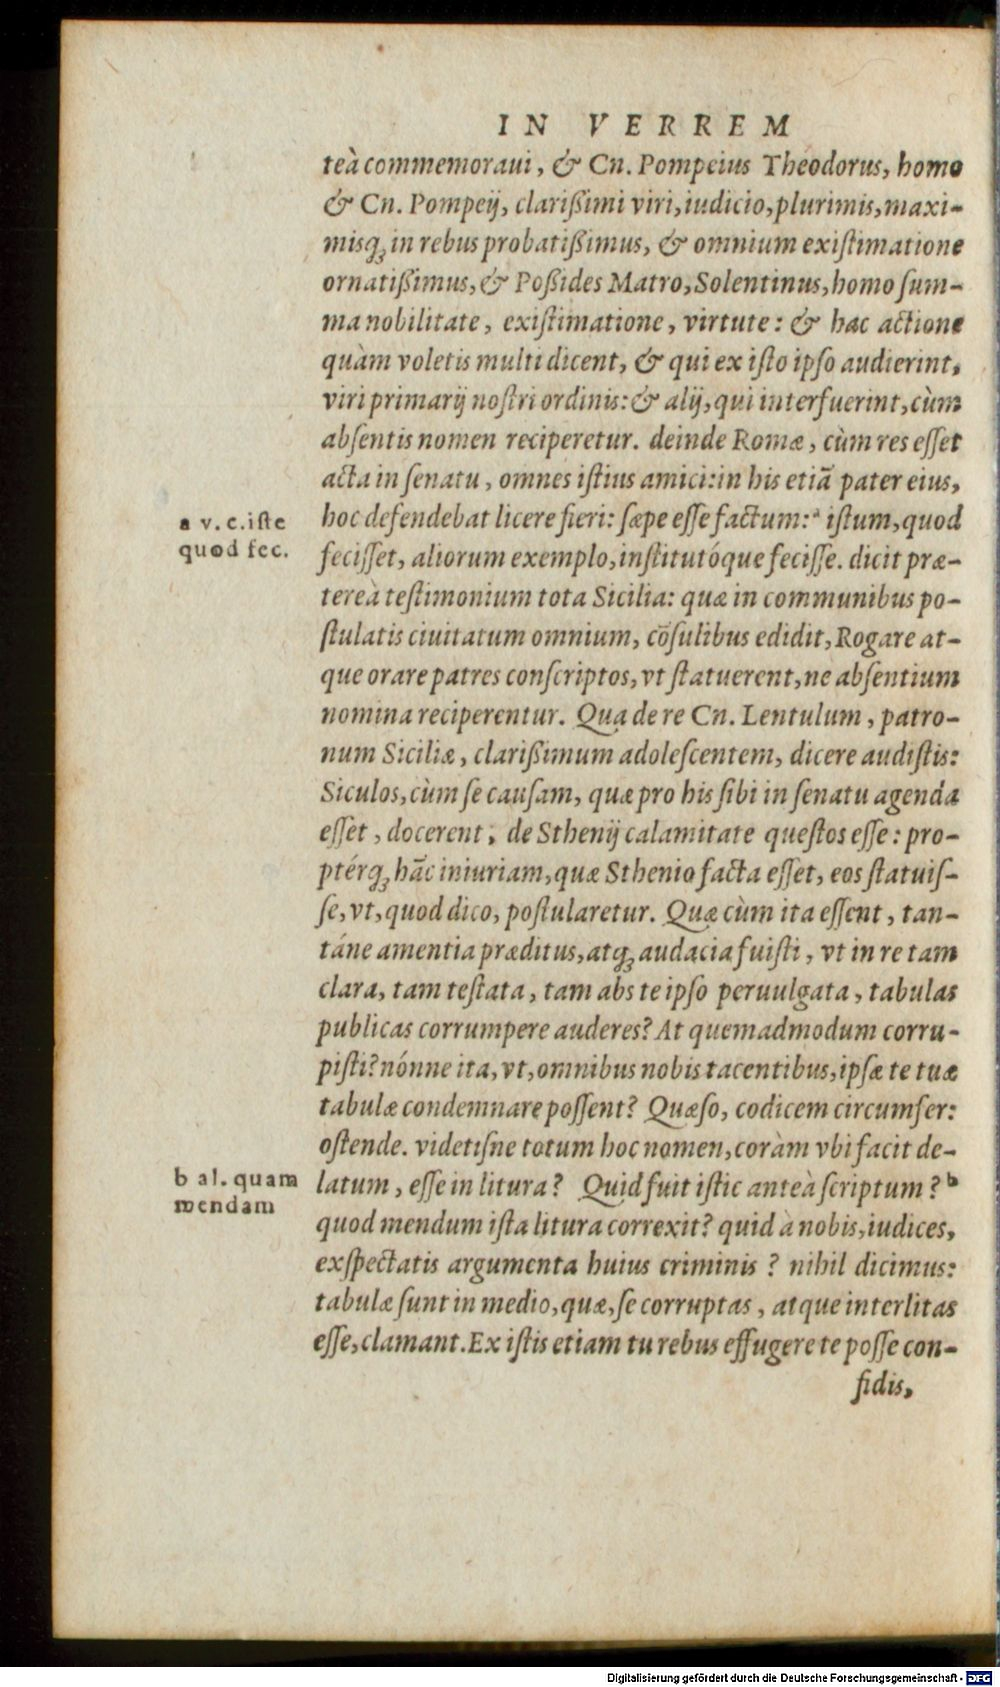 IN VERREM
teà commemoraui, & Cn. Pompeius Theodorus, homo
& Cn. Pompeij, clarißimi viri, iudicio, plurimis, maxi-
misq́; in rebus probatißimus, & omnium existimatione
ornatißimus, & Poßides Matro, Solentinus, homo sum-
ma nobilitate, existimatione, virtute: & hac actione
quàm voletis multi dicent, & qui ex isto ipso audierint,
viri primarij nostri ordinis: & alij, qui interfuerint, cùm
absentis nomen reciperetur. deinde Romæ, cùm res esset
acta in senatu, omnes istius amici: in his etiã pater eius,
hoc defendebat licere fieri: sæpe esse factum: ᵃ istum, quod
a v. c. iste
quod fec.
fecisset, aliorum exemplo, institutóque fecisse. dicit præ-
tereà testimonium tota Sicilia: quæ in communibus po-
stulatis ciuitatum omnium, cõsulibus edidit, Rogare at-
que orare patres conscriptos, vt statuerent, ne absentium
nomina reciperentur. Qua de re Cn. Lentulum, patro-
num Siciliæ, clarißimum adolescentem, dicere audistis:
Siculos, cùm se causam, quæ pro his sibi in senatu agenda
esset, docerent, de Sthenij calamitate questos esse: pro-
ptérq; hãc iniuriam, quæ Sthenio facta esset, eos statuis-
se, vt, quod dico, postularetur. Quæ cùm ita essent, tan-
táne amentia præditus, atq; audacia fuisti, vt in re tam
clara, tam testata, tam abs te ipso peruulgata, tabulas
publicas corrumpere auderes? At quemadmodum corru-
pisti? nónne ita, vt, omnibus nobis tacentibus, ipsæ te tuæ
tabulæ condemnare possent? Quæso, codicem circumfer:
ostende. videtisne totum hoc nomen, coràm vbi facit de-
latum, esse in litura? Quid fuit istic anteà scriptum? ᵇ
b al. quam
mendam
quod mendum ista litura correxit? quid à nobis, iudices,
exspectatis argumenta huius criminis ? nihil dicimus:
tabulæ sunt in medio, quæ, se corruptas, atque interlitas
esse, clamant. Ex istis etiam tu rebus effugere te posse con-
fidis,
Digitalisierung gefördert durch die Deutsche Forschungsgemeinschaft - DFG